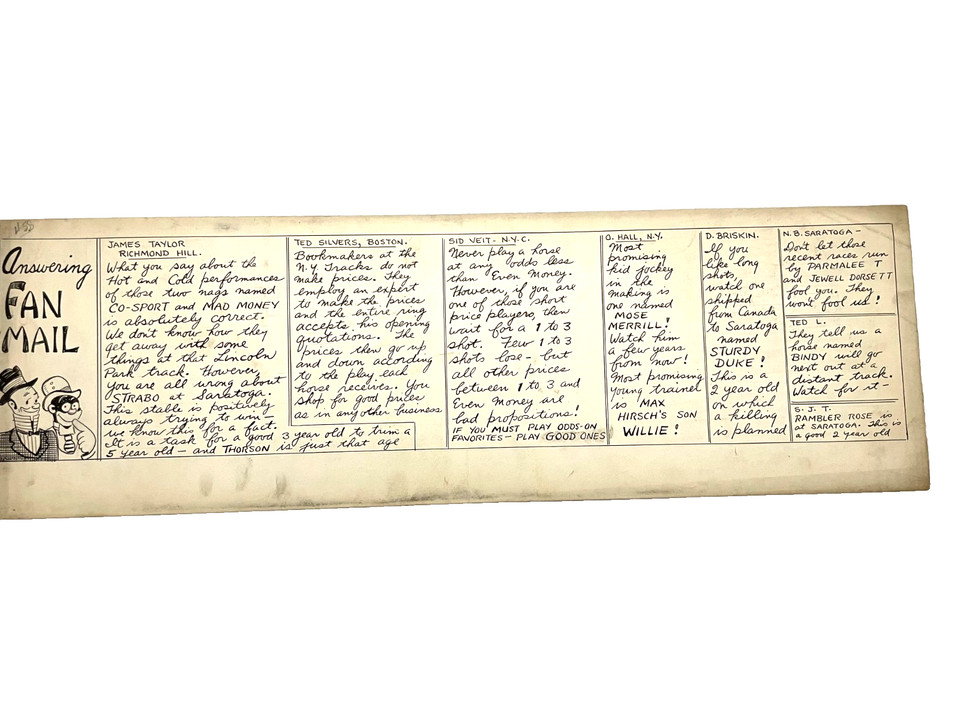 Answering
FAN
MAIL
JAMES TAYLOR
RICHMOND HILL.
What you say about the
Hot and Cold performances
of those two nags named
CO-SPORT and MAD MONEY
is absolutely correct.
We don't know how they
get away with some
things at that Lincoln
Park track. However,
you are all wrong about
STRABO at Saratoga.
This stable is positively
always trying to win—
we know this for a fact.
It is a task for a good 3 year old to trim a
5 year old — and THORSON is just that age
TED SILVERS, BOSTON.
Bookmakers at the
N.Y. Tracks do not
make prices. They
employ an expert
to make the prices
and the entire ring
accepts his opening
quotations. The
prices then go up
and down acording
to the play each
horse receives. You
shop for good prices
as in any other business
SID VEIT - N.Y.C.
Never play a horse
at any odds less
than Even Money.
However, if you are
one of those short
price players, then
wait for a 1 to 3
shot. Few 1 to 3
shots lose - but
all other prices
between 1 to 3 and
Even Money are
bad propositions!
IF YOU MUST PLAY ODDS-ON
FAVORITES — PLAY GOOD ONES
O. HALL, N.Y.
Most
promising
kid jockey
in the
making is
one named
MOSE
MERRILL!
Watch him
a few years
from now!
Most promising
young trainer
is MAX
HIRSCH'S SON
WILLIE!
D. BRISKIN.
If you
like long
shots,
watch one
shipped
from Canada
to Saratoga
named
STURDY
DUKE!
This is a
2 year old
on which
a killing
is planned
N.B. SARATOGA —
Don't let those
recent races run
by PARMALEE T
and JEWELL DORSETT
fool you. They
won't fool us!
TED L.
They tell us a
horse named
BINDY will go
next out at a
distant track.
Watch for it —
S. J. T.
RAMBLER ROSE is
at SARATOGA. This is
a good 2 year old